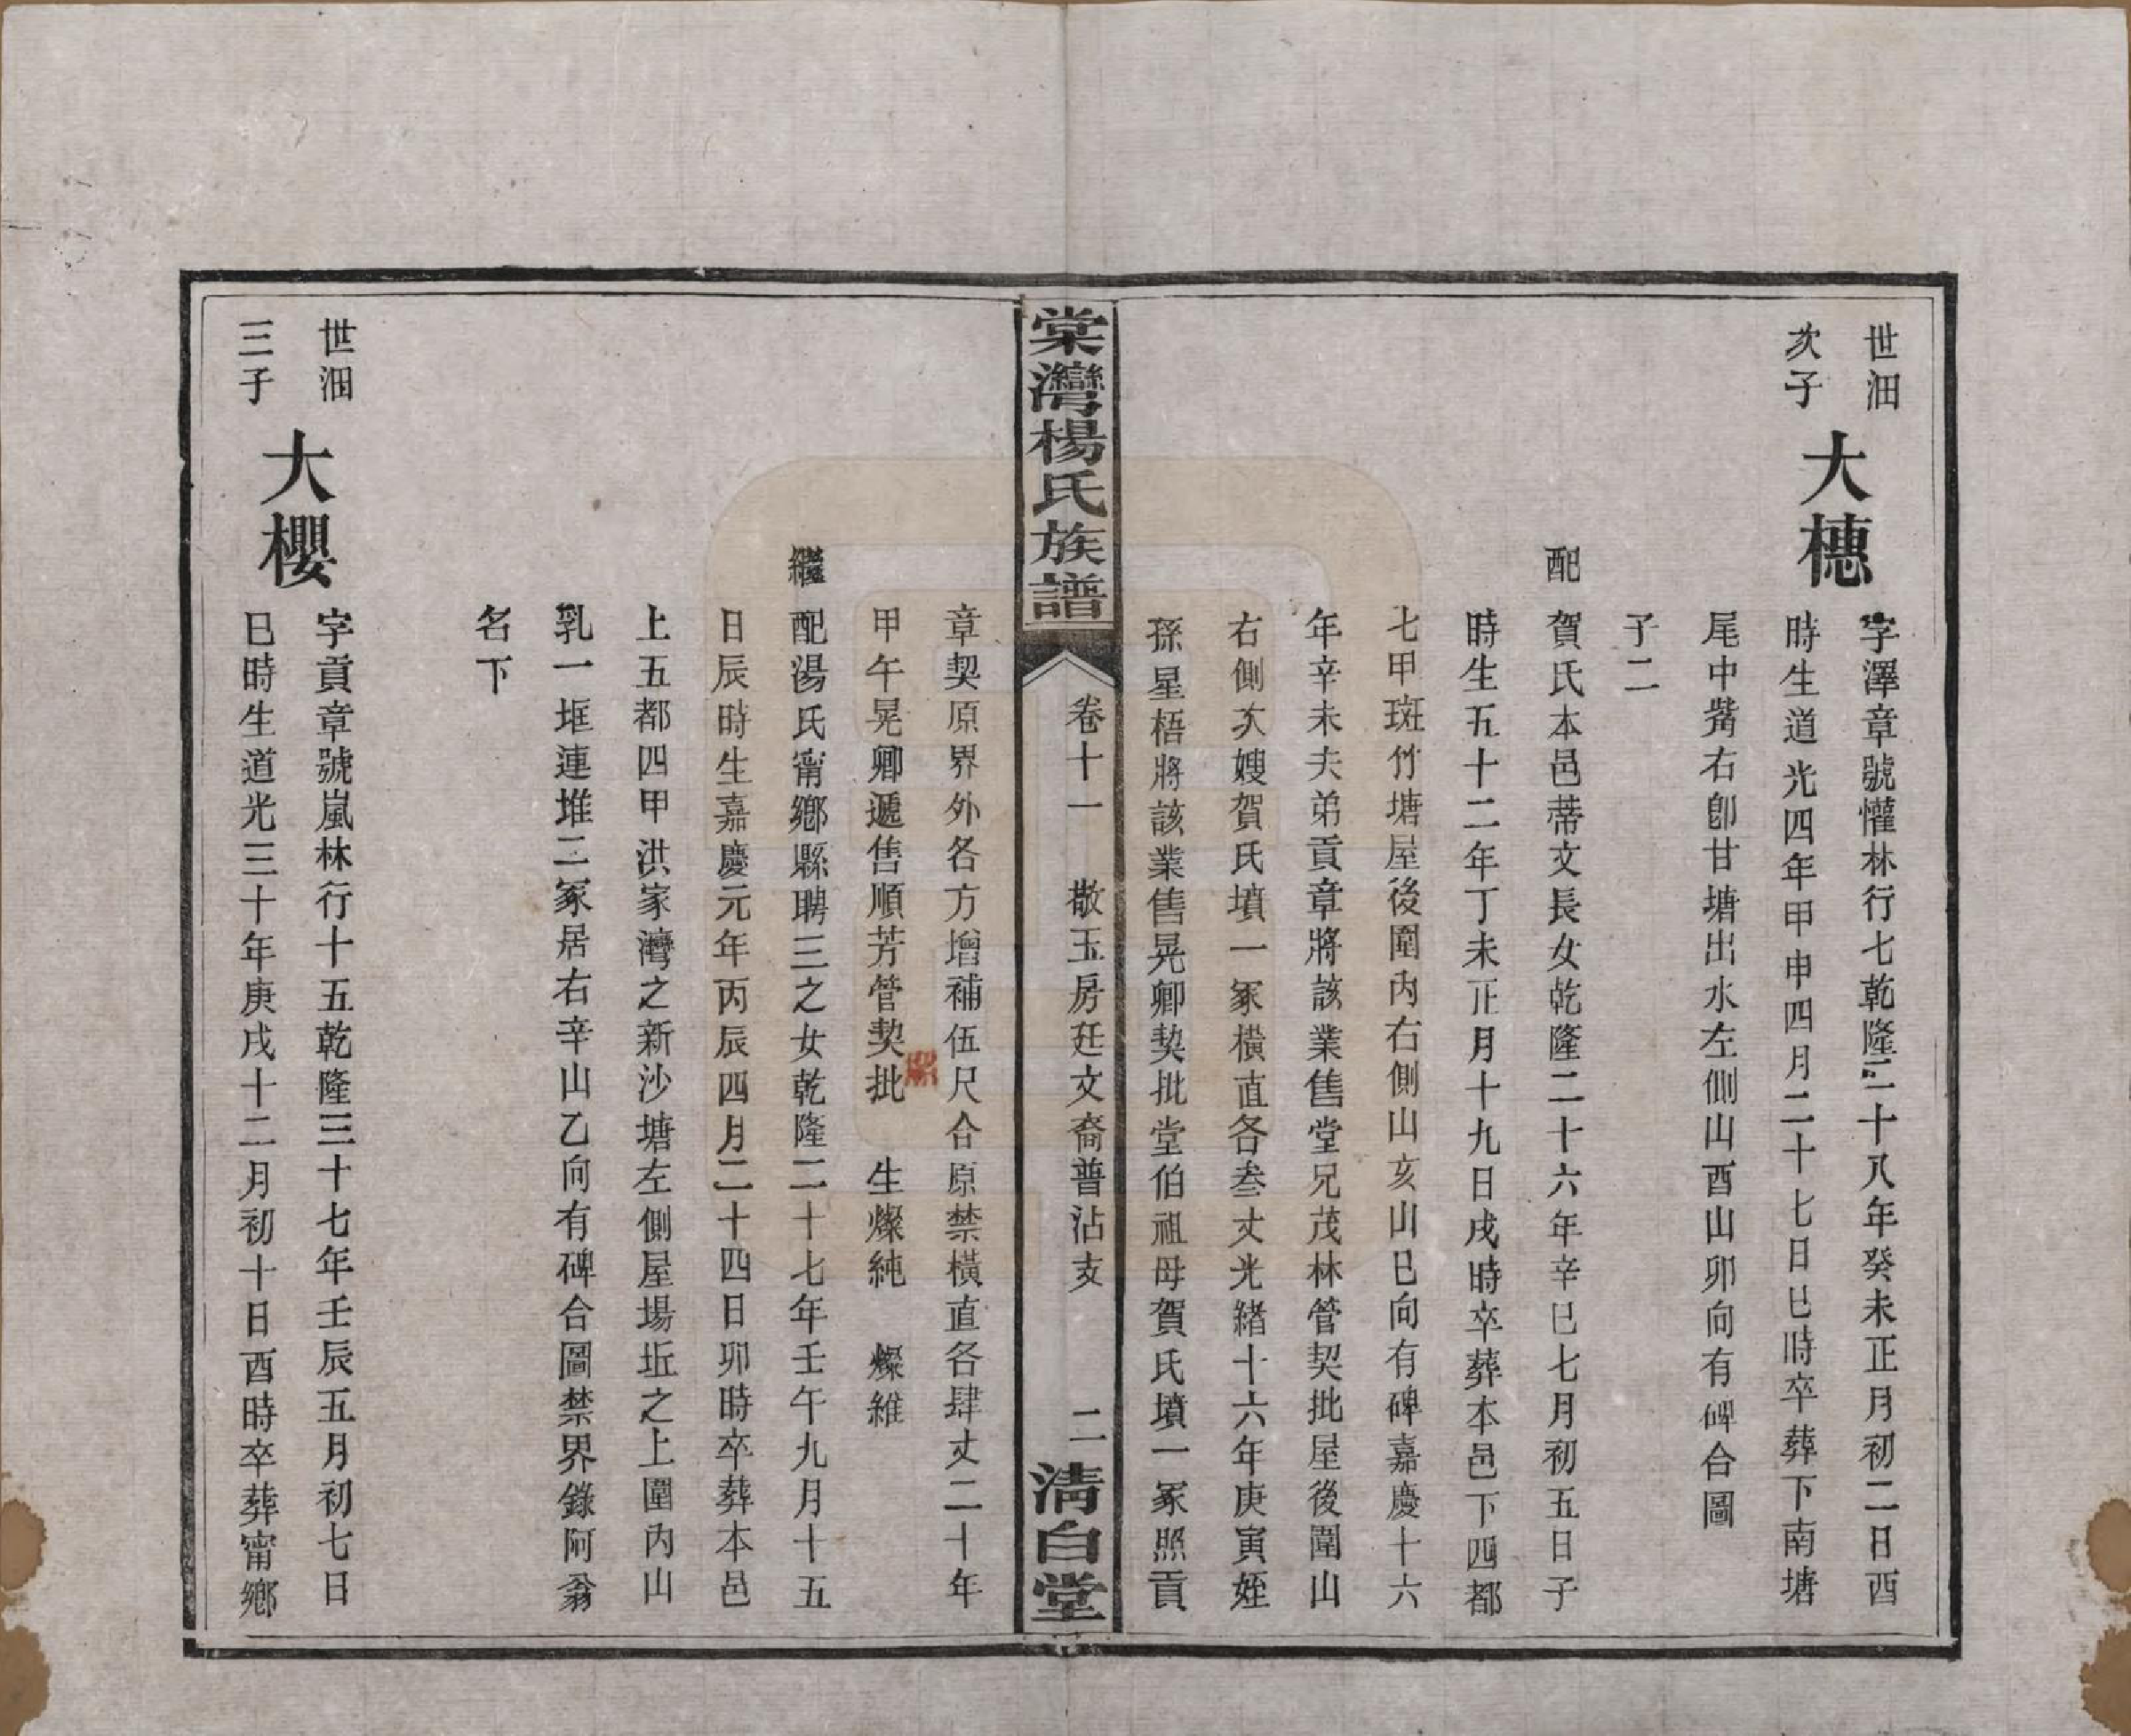 世沺
次子
大穗
字澤章號懽林行七乾隆二十八年癸未正月初二日酉
時生道光四年甲申四月二十七日巳時卒葬下南塘
尾中嶲右卽甘塘出水左側山酉山卯向有碑合圖
子二
配賀氏本邑蒂文長女乾隆二十六年辛巳七月初五日子
時生五十二年丁未正月十九日戌時卒葬本邑下四都
七甲斑竹塘屋後圍內右側山亥山巳向有碑嘉慶十六
年辛未夫弟貢章將該業售堂兄茂林管契批屋後圍山
右側次嫂賀氏墳一冢橫直各叁丈光緒十六年庚寅姪
孫星梧將該業售晃卿契批堂伯祖母賀氏墳一冢照貢
棠灣楊氏族譜
卷十一
散玉房廷文裔普沾支
二
淸白堂
章契原界外各方增補伍尺合原禁橫直各肆丈二十年
甲午晃卿遞售順芳管契批 生燦純 燦維
繼配湯氏甯鄉縣聘三之女乾隆二十七年壬午九月十五
日辰時生嘉慶元年丙辰四月二十四日卯時卒葬本邑
上五都四甲洪家灣之新沙塘左側屋場坵之上圍內山
乳一堆連堆二冢居右辛山乙向有碑合圖禁界錄阿翁
名下
世沺
三子
大櫻
字貢章號嵐林行十五乾隆三十七年壬辰五月初七日
巳時生道光三十年庚戌十二月初十日酉時卒葬甯鄉